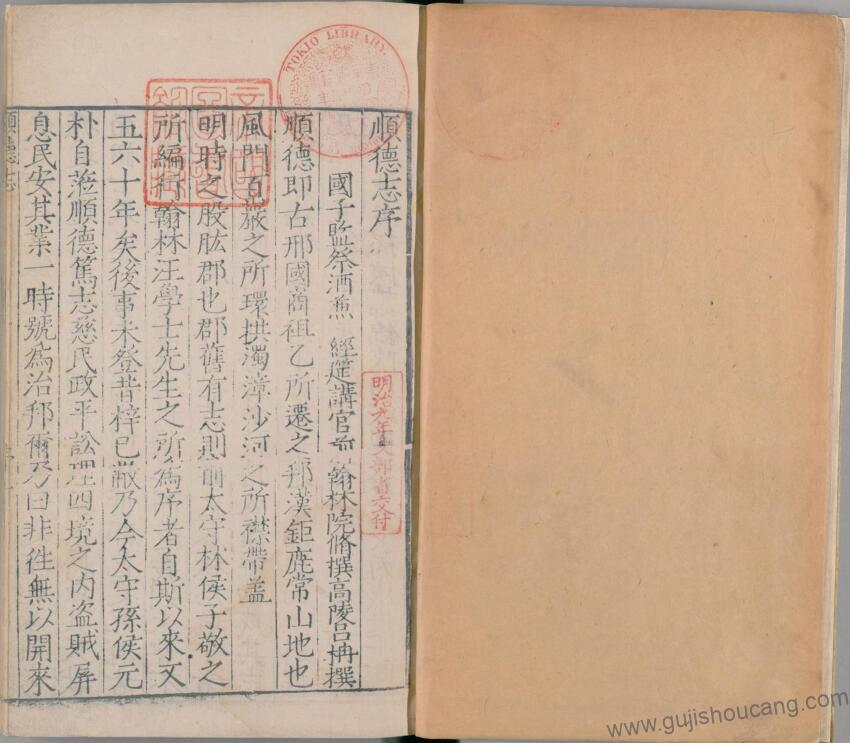 順德志序
國子監祭酒前 經筵講官 翰林院脩撰高陵呂柟撰
順德即古邢國商祖乙所遷之邦漢鉅鹿常山地也
風門百巖之所環拱濁漳沙河之所襟帶蓋
明時之股肱郡也郡舊有志則前太守林侯子敬之
所編行翰林汪學士先生之所為序者自斯以來文
五六十年矣後事未登昔梓已敝乃今太守孫侯元
朴自蒞順德篤志慈民政平訟理四境之内盗賊屏
息民安其業一時號為治邦爾乃曰非徃無以開來
順德志
TOKIO LIBRARY
明治九年文部省交付
www.gujishoucang.com